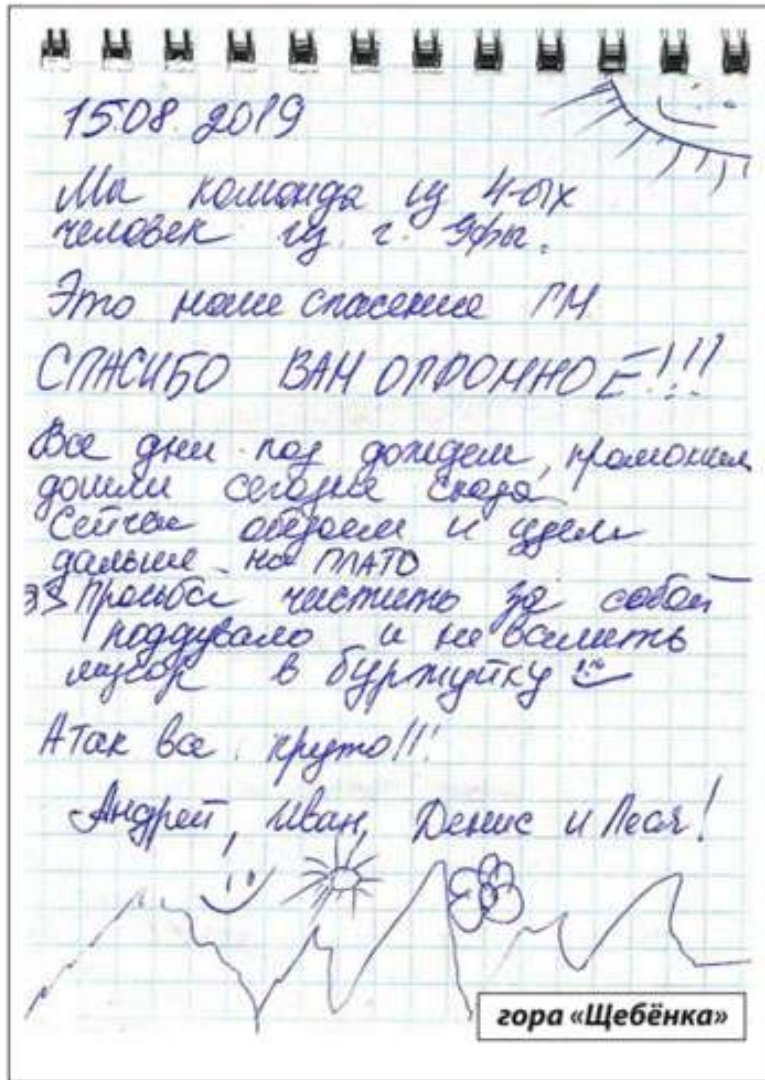 15.08.2019
Мы команда из 4-ых
человек из г. Уфы.
Это наше спасение ГМ
СПАСИБО ВАМ ОГРОМНОЕ!!!
Все дни под дождем, промокшие
дошли сегодня сюда
Сейчас обедаем и идем
дальше на ПЛАТО
Просьба чистить за собой
поддувало и не валить
мусор в буржуйку
А так все круто!!!
Андрей, Иван, Денис и Леся!
гора «Щебёнка»